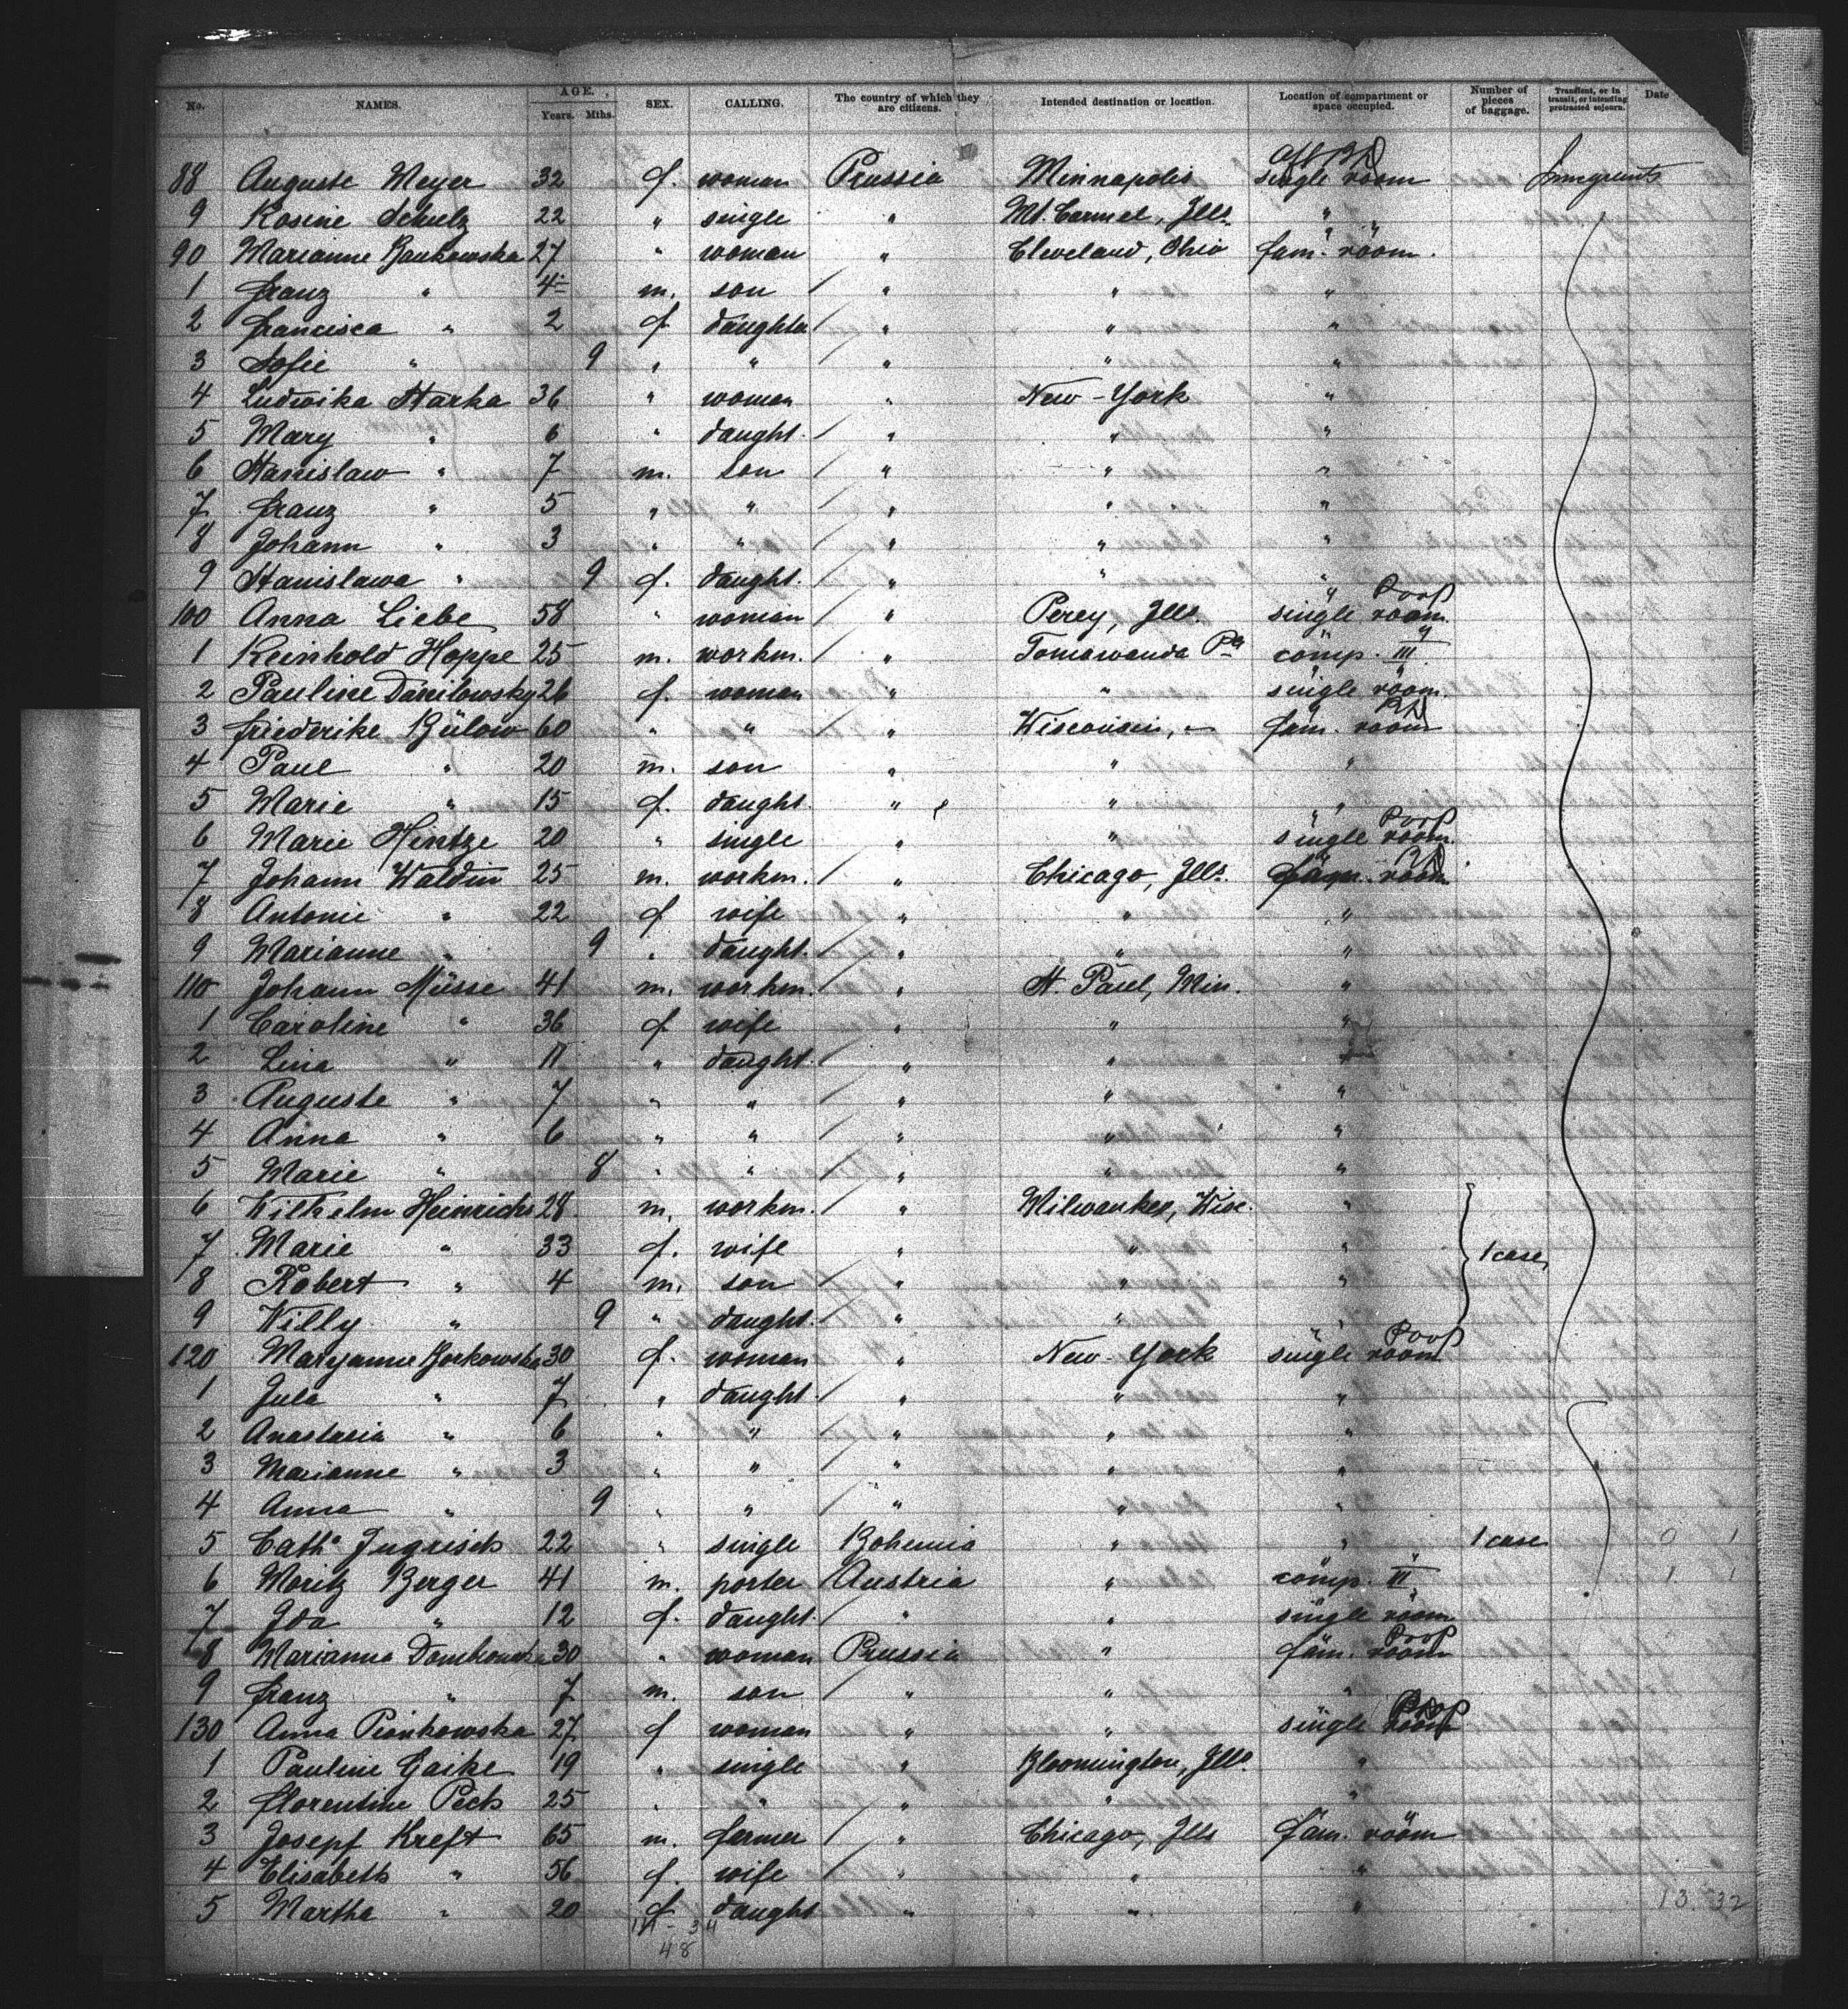 No. NAMES. AGE. Years. Mths. SEX. CALLING. The country of which they are citizens. Intended destination or location. Location of compartment or space occupied. Number of pieces of baggage. Transient, or in transit, or intending protracted sojourn. Date
88 Auguste Meyer 32 f. woman Prussia Minnapolis single room
9 Rosine Schulz 22 " single " Mt. Carmel, Ills. " "
90 Marianne 27 " woman " Cleveland, Ohio fam. room.
1 Franz " 4 m. son / " " "
2 Francisca " 2 f. daughter / " " "
3 Sofie " 9 " " / " " "
4 Ludwika Starka 36 " woman " New-York "
5 Mary " 6 " daught. / " " "
6 Stanislaw " 7 m. son / " " "
7 Franz " 5 " " / " " "
8 Johann " 3 " " / " " "
9 Stanislawa " 9 f. daught. / " " "
100 Anna Liebe 58 " woman " Percy, Ills. single room. Poop
1 Reinhold Hoppe 25 m. workm. / " Tomawanda Pa comp. III "
2 Pauline Danilowsky 26 f. woman " " single room.
3 Friederike Bülow 60 " " " Wisconsin, fam. room
4 Paul " 20 m. son " " "
5 Marie " 15 f. daught. " " "
6 Marie Hintze 20 " single " " single room. Poop
7 Johann Waldin 25 m. workm. / " Chicago, Ills. fam. room
8 Antonie " 22 f. wife " " "
9 Marianne " 9 " daught. / " " "
110 Johann Müsse 41 m. workm. / " St. Paul, Min. "
1 Caroline " 36 f. wife " " "
2 Lina " 11 " daught. " " "
3 Auguste " 7 " " / " " "
4 Anna " 6 " " / " " "
5 Marie " 8 " " / " " "
6 Wilhelm Heinrichs 28 m. workm. / " Milwaukee, Wisc. "
7 Marie " 33 f. wife " " " 1 case
8 Robert " 4 m. son / " " "
9 Willy " 9 " daught. / " " "
120 Maryanne Borkowska 30 f. woman " New-York single room Poop
1 Jula " 7 " daught. / " " "
2 Anastasia " 6 " " / " " "
3 Marianne " 3 " " / " " "
4 Anna " 9 " " / " " "
5 Cath. 22 " single Bohemia " " 1 case 0 1
6 Moritz Berger 41 m. porter Austria " comp. III 1 1
7 Ida " 12 f. daught. / " " single room
8 Marianna 30 " woman Prussia " fam. room Poop
9 Franz " 7 m. son / " " "
130 Anna Pionkowska 27 f woman " " single room Poop
1 Pauline Gaike 19 " single " Bloomington, Ills. "
2 Florentine Peck 25 " " " " "
3 Josepf Kreft 65 m. farmer / " Chicago, Ills fam. room
4 Elisabeth " 56 f. wife " " "
5 Martha " 20 f daught " " " 13 32
34
48